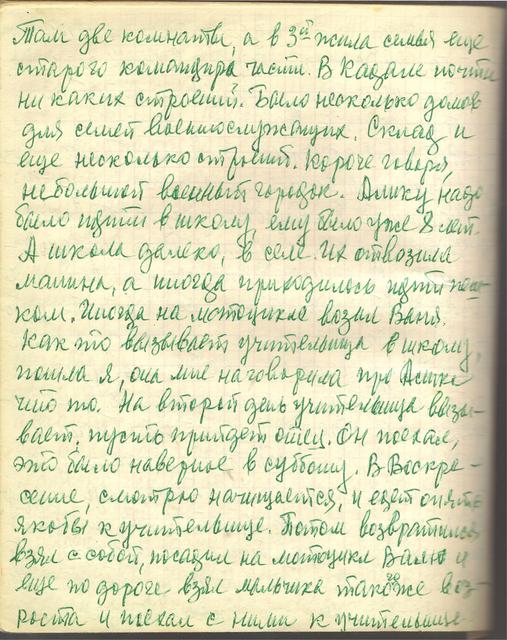 Там две комнаты, а в 3ей жила семья еще
старого командира части. В Кадале почти
ни каких строений. Было несколько домов
для семей военнослужащих. Склад и
еще несколько строений. Короче говоря,
небольшой военный городок. Алику надо
было идти в школу, ему было уже 8 лет.
А школа далеко, в селе. Их отвозила
машина, а иногда приходилось идти пеш-
ком. Иногда на мотоцикле возил Ваня.
Как то вызывает учительница в школу,
пошла я, она мне наговорила про Алика
что то. На второй день учительница вызы-
вает, пусть прийдет отец. Он поехал,
это было наверное в субботу. В Воскре-
сение, смотрю начищается, и едет опять
якобы к учительнице. Потом возвратился
взял с собой, посадил на мотоцикл Валю и
еще по дороге взял мальчика такого же воз-
роста и поехал с ними к учительнице